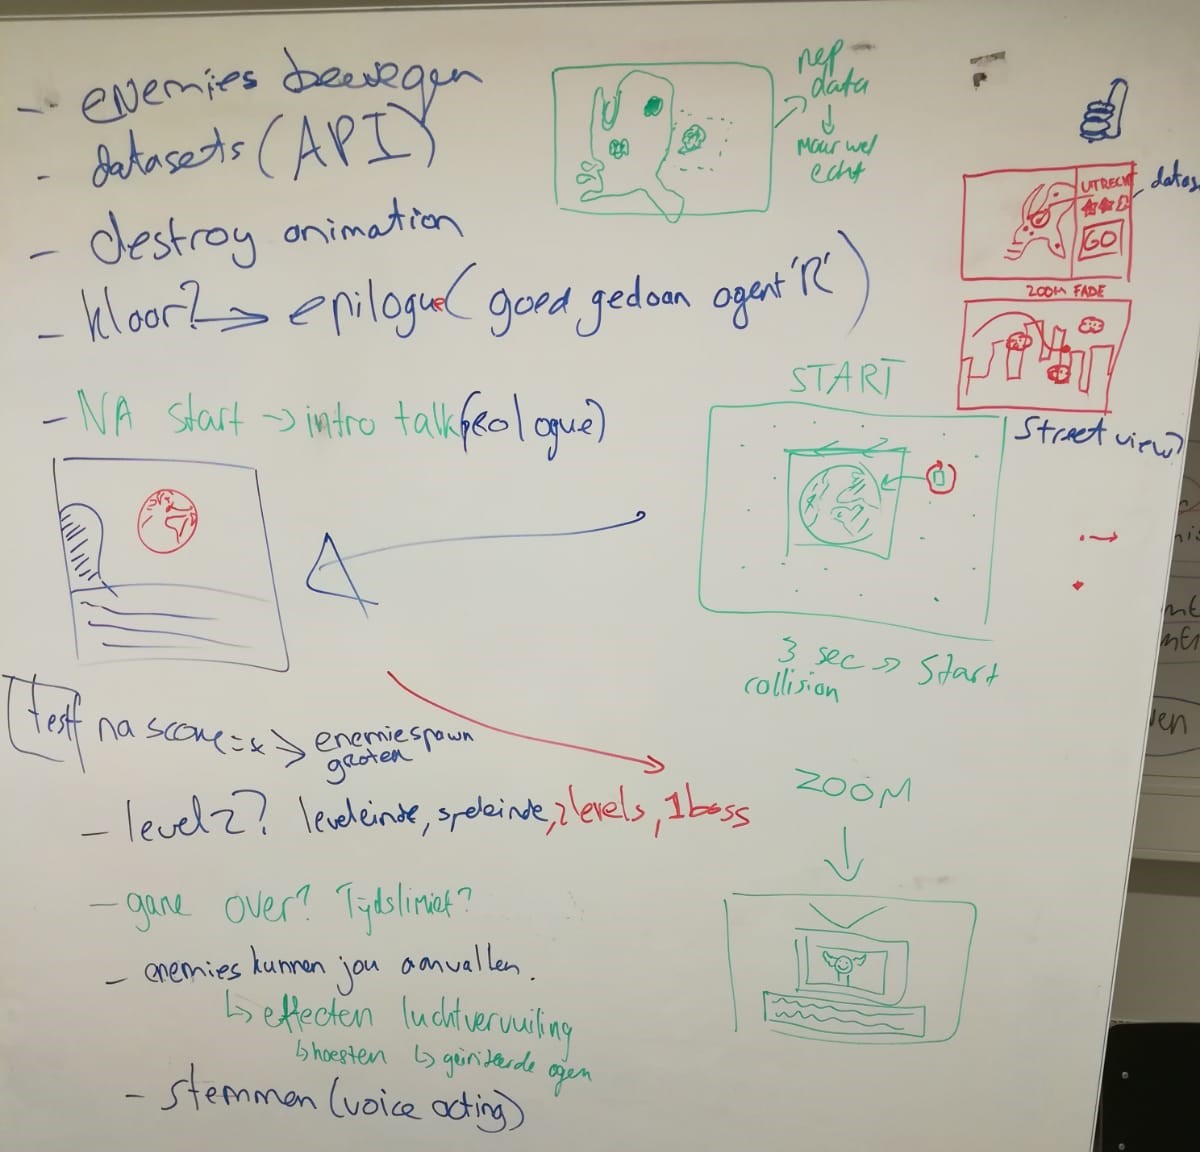 - enemies bewegen
- datasets (API)
- destroy animation
- klaar? → epilogue (goed gedaan agent 'R')
- NA start → intro talk (prologue)
nep
data
↓
maar wel
echt
UTRECHT
GO
ZOOM FADE
Street view?
START
3 sec → start
collision
test na score = x → enemie spawn
groter
- level 2? leveleinde, speleinde, 2 levels, 1 boss
- game over? Tijdslimiet?
- enemies kunnen jou aanvallen.
↳ effecten luchtvervuiling
↳ hoesten ↳ geïriteerde ogen
- stemmen (voice acting)
ZOOM